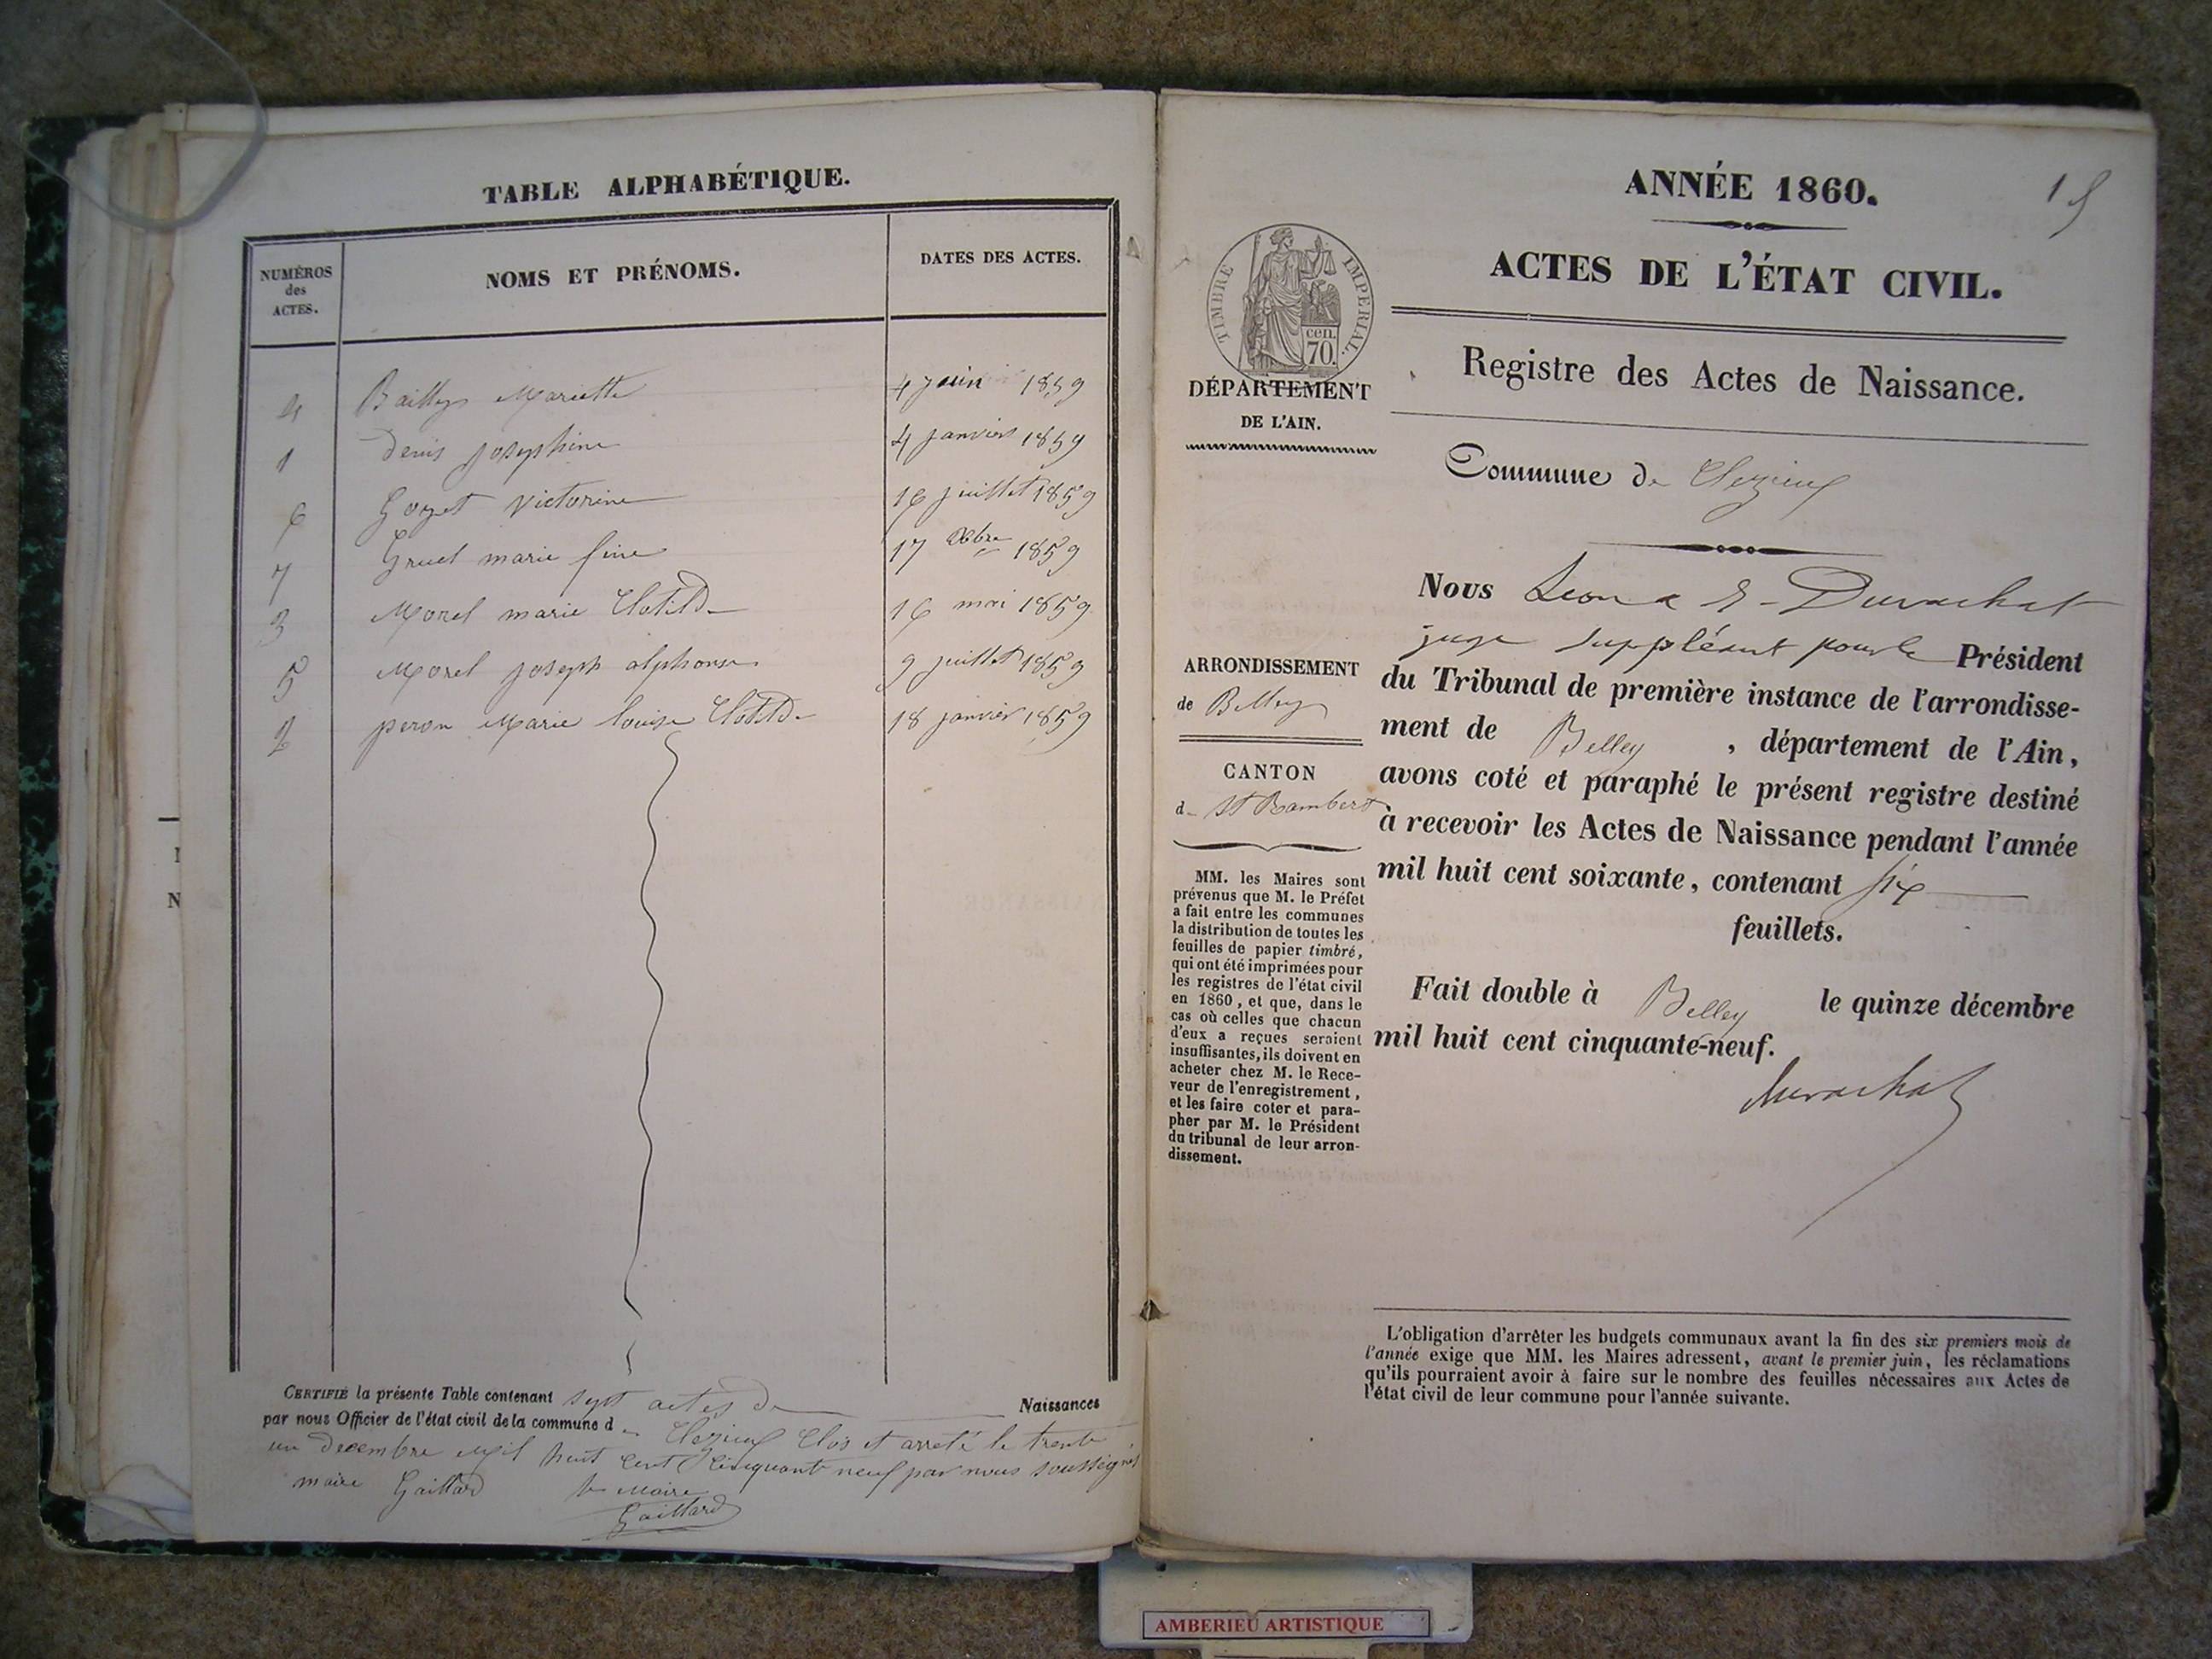 TABLE ALPHABÉTIQUE.
NUMÉROS des ACTES. NOMS ET PRÉNOMS. DATES DES ACTES.
4 Bailly Mariette 4 juin 1859
1 denis josephine 4 janvier 1859
6 Goyet victorine 16 juillet 1859
7 Gruel marie fine 17 Xbre 1859
3 Morel marie Clotilde 16 mai 1859
5 Morel joseph alphonse 9 juillet 1859
2 peron Marie louise Clotilde 18 janvier 1859
CERTIFIÉ la présente Table contenant sept actes de Naissances
par nous Officier de l'état civil de la commune de Cleyzieu Clos et arreté le trente
un decembre Mil huit Cent Cinquante neuf par nous soussigné
maire Gaillard le Maire
Gaillard
15
ANNÉE 1860.
ACTES DE L'ÉTAT CIVIL.
TIMBRE IMPÉRIAL.
cen. 70.
DÉPARTEMENT
DE L'AIN.
Registre des Actes de Naissance.
Commune de Cleyzieu
ARRONDISSEMENT
de Belley
CANTON
de St Rambert
MM. les Maires sont
prévenus que M. le Préfet
a fait entre les communes
la distribution de toutes les
feuilles de papier timbré,
qui ont été imprimées pour
les registres de l'état civil
en 1860, et que, dans le
cas où celles que chacun
d'eux a reçues seraient
insuffisantes, ils doivent en
acheter chez M. le Rece-
veur de l'enregistrement,
et les faire coter et para-
pher par M. le Président
du tribunal de leur arron-
dissement.
Nous Durachat
juge suppléant pour le Président
du Tribunal de première instance de l'arrondisse-
ment de Belley, département de l'Ain,
avons coté et paraphé le présent registre destiné
à recevoir les Actes de Naissance pendant l'année
mil huit cent soixante, contenant six
feuillets.
Fait double à Belley le quinze décembre
mil huit cent cinquante-neuf.
Durachat
L'obligation d'arrêter les budgets communaux avant la fin des six premiers mois de
l'année exige que MM. les Maires adressent, avant le premier juin, les réclamations
qu'ils pourraient avoir à faire sur le nombre des feuilles nécessaires aux Actes de
l'état civil de leur commune pour l'année suivante.
AMBERIEU ARTISTIQUE